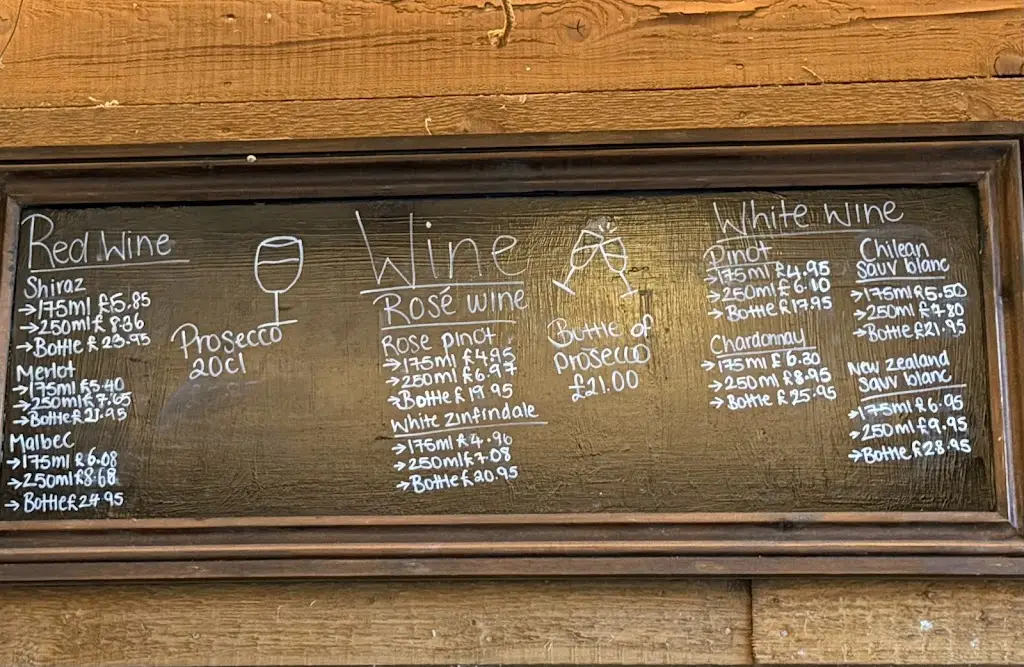 Red Wine
Shiraz
→175ml £5.85
→250ml £8.36
→Bottle £23.95
Merlot
→175ml £5.40
→250ml £7.65
→Bottle £21.95
Malbec
→175ml £6.08
→250ml £8.68
→Bottle £24.95
Prosecco
20cl
Wine
Rosé wine
Rose pinot
→175ml £4.95
→250ml £6.97
→Bottle £19.95
White Zinfindale
→175ml £4.96
→250ml £7.08
→Bottle £20.95
Bottle of
Prosecco
£21.00
White wine
Pinot
→175ml £4.95
→250ml £6.10
→Bottle £17.95
Chardonnay
→175ml £6.30
→250ml £8.95
→Bottle £25.95
Chilean
sauv blanc
→175ml £5.50
→250ml £7.80
→Bottle £21.95
New zealand
sauv blanc
→175ml £6.95
→250ml £9.95
→Bottle £28.95